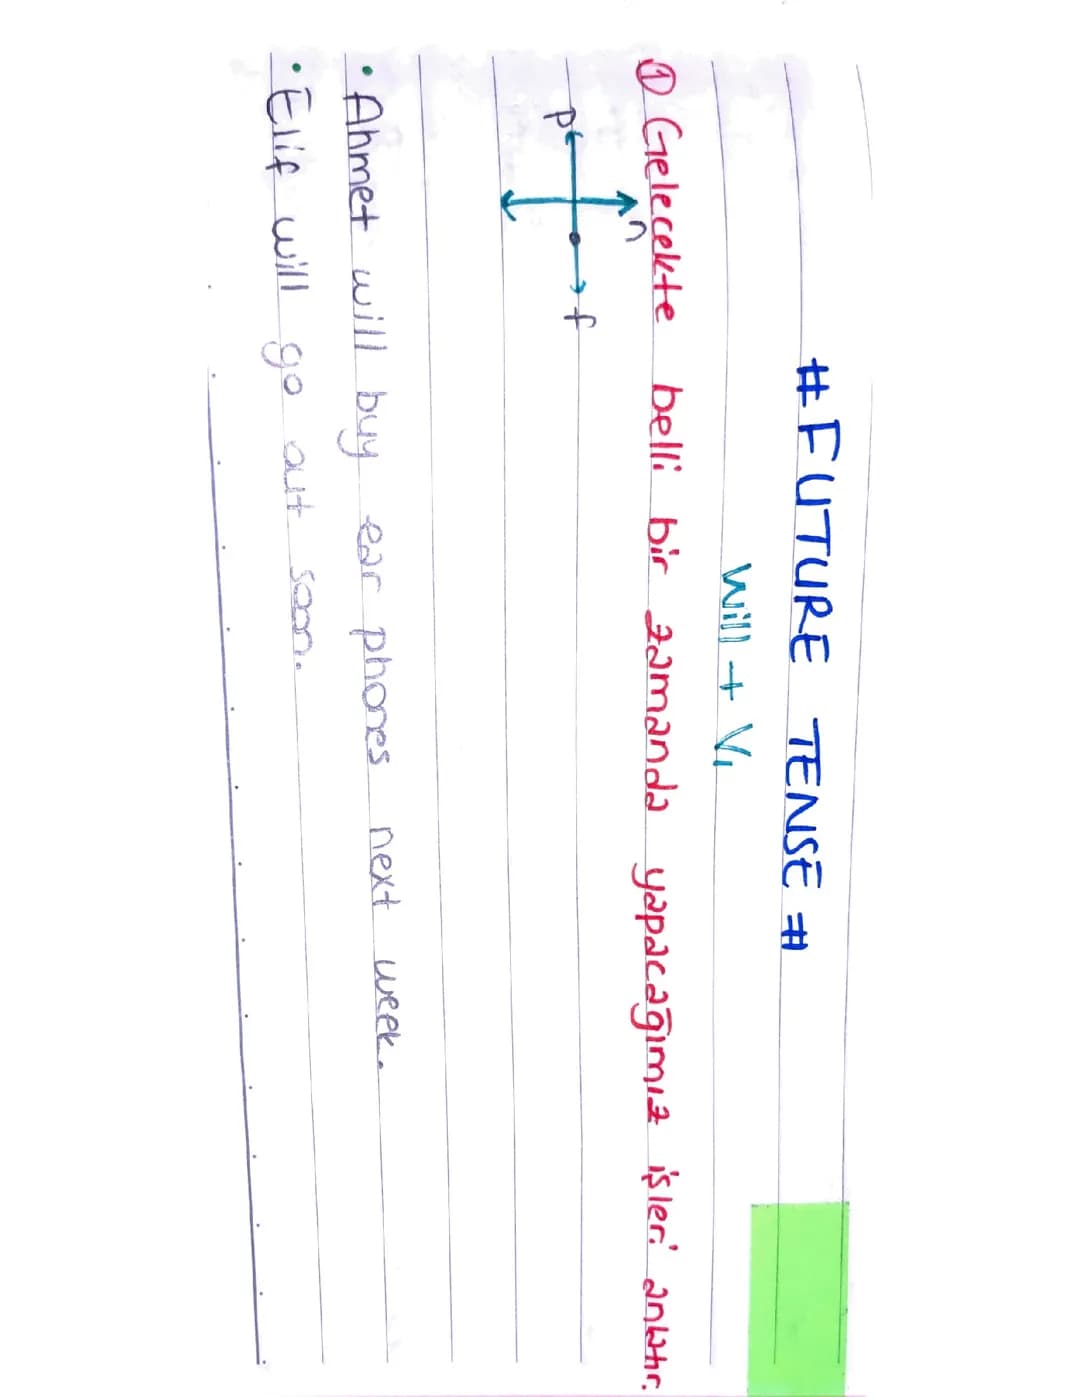 # FUTURE TENSE #
Will + V₁
① Gelecekte belli bir zamanda yapacağımız işleri anlatır.
n
p f
• Ahmet will buy ear phones next week.
• Elif will go out soon.